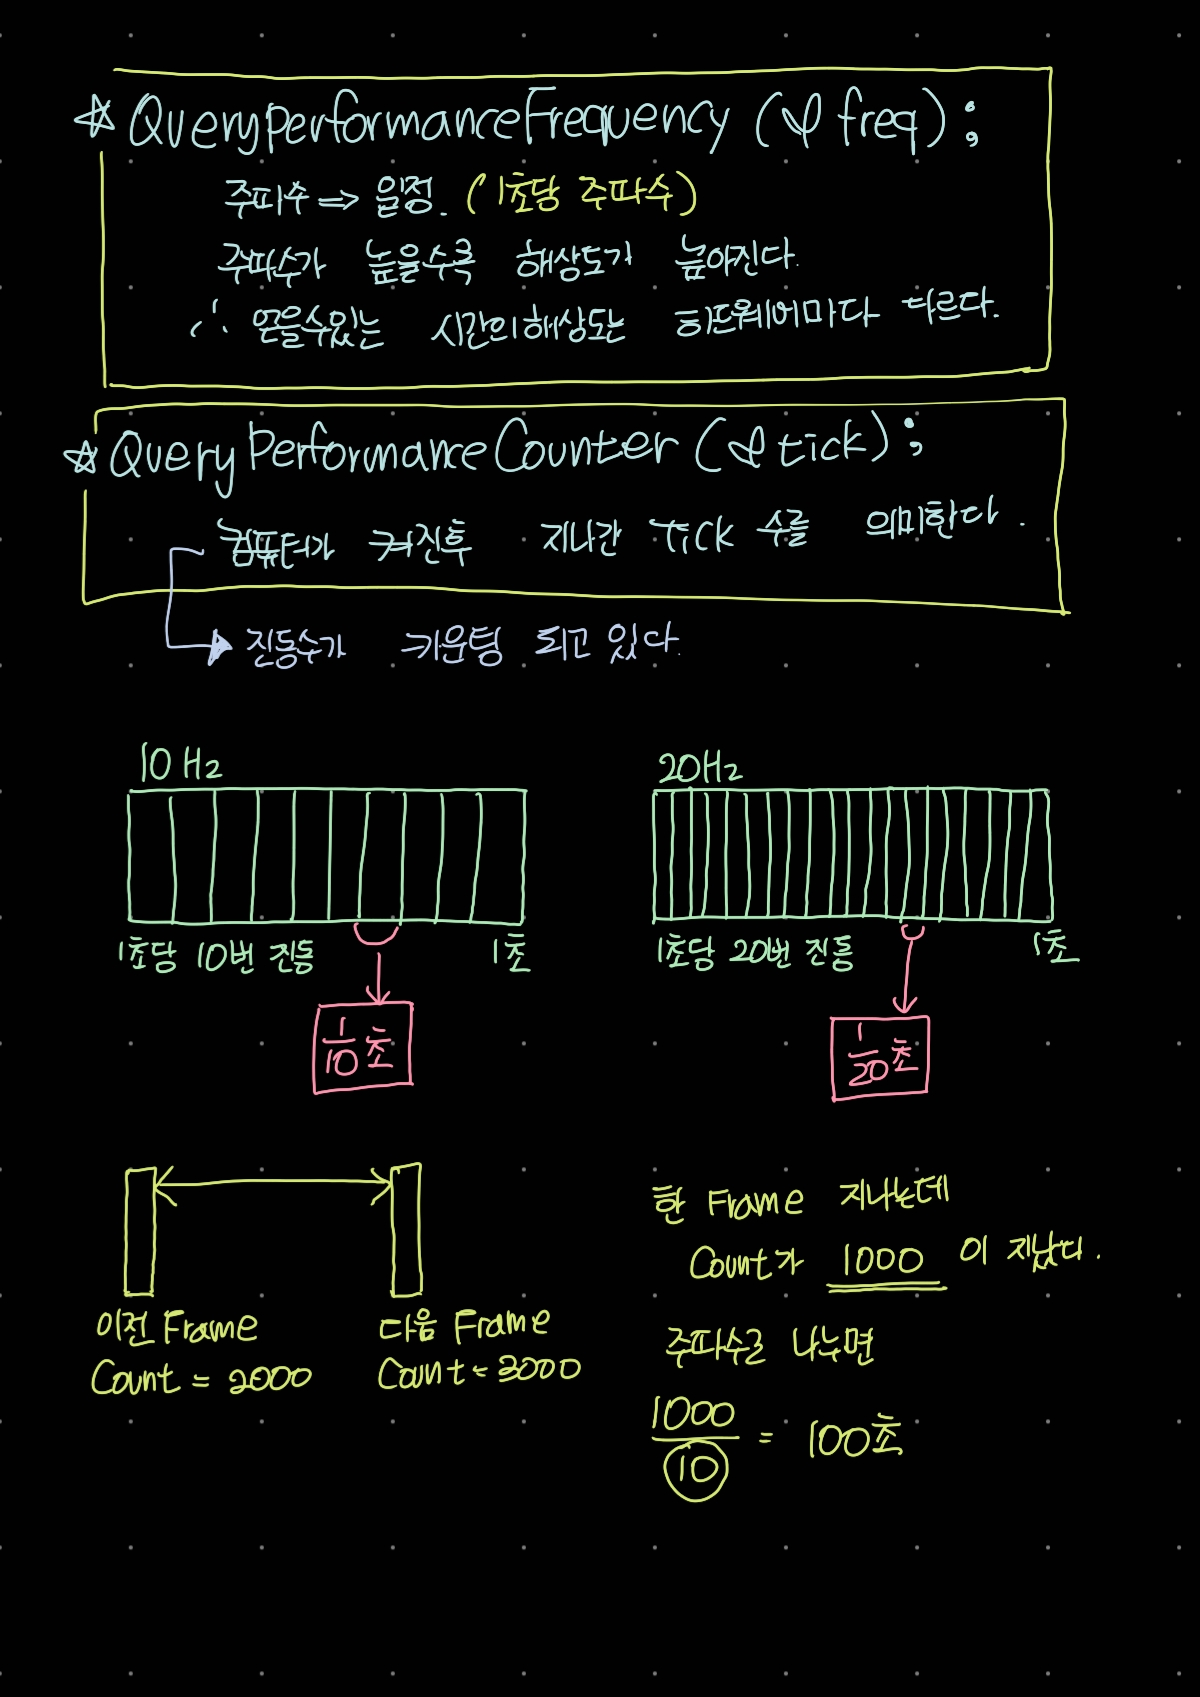 ☆ QueryPerformanceFrequency (& freq);
주파수 => 일정. (1초당 주파수)
주파수가 높을수록 해상도가 높아진다.
∴ 얻을수있는 시간의 해상도는 하드웨어마다 다르다.
☆ QueryPerformanceCounter (& tick);
컴퓨터가 켜진후 지나간 Tick 수를 의미한다.
진동수가 카운팅 되고 있다.
10Hz
1초당 10번 진동
1초
1/10 초
20Hz
1초당 20번 진동
1초
1/20 초
이전 Frame
Count = 2000
다음 Frame
Count = 3000
한 Frame 지나는데
Count가 1000 이 지났다.
주파수로 나누면
1000/10 = 100초